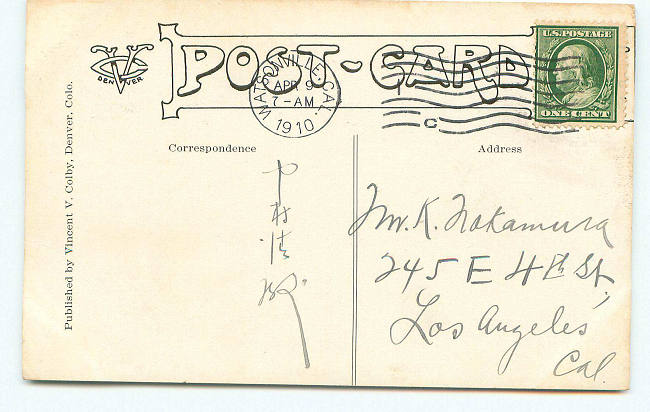 VC
DENVER
POST-CARD
U.S. POSTAGE
ONE CENT
WATSONVILLE, CAL.
APR 9
7-AM
1910
C
Published by Vincent V. Colby, Denver, Colo.
Correspondence
中村清
Address
Mr. K. Nakamura
245 E 4th St,
Los Angeles
Cal.